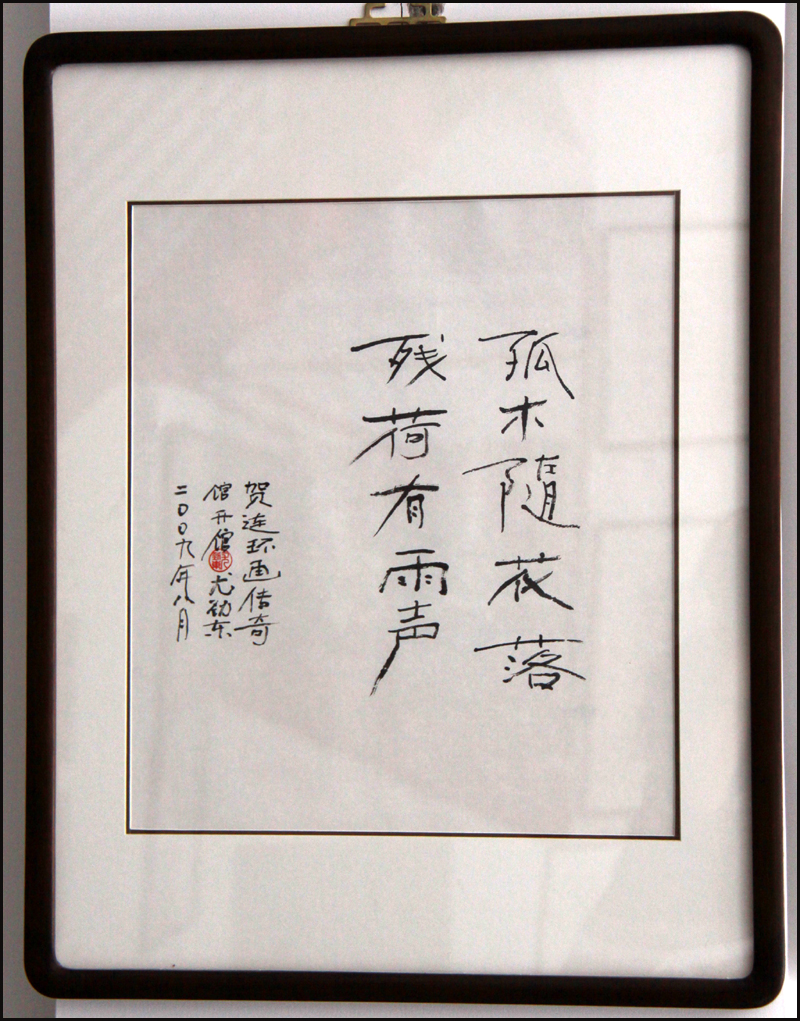 孤木随花落
残荷有雨声
贺连环画传奇
馆开馆 尤劲东
二〇〇九年八月